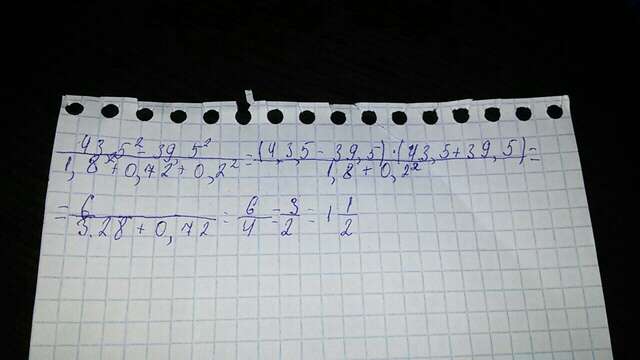 43,5² - 39,5² / 1,8² + 0,72 + 0,2² = (43,5 - 39,5) · (43,5 + 39,5) / 1,8 + 0,2² =
= 6 / 3.28 + 0,72 = 6/4 = 3/2 = 1 1/2